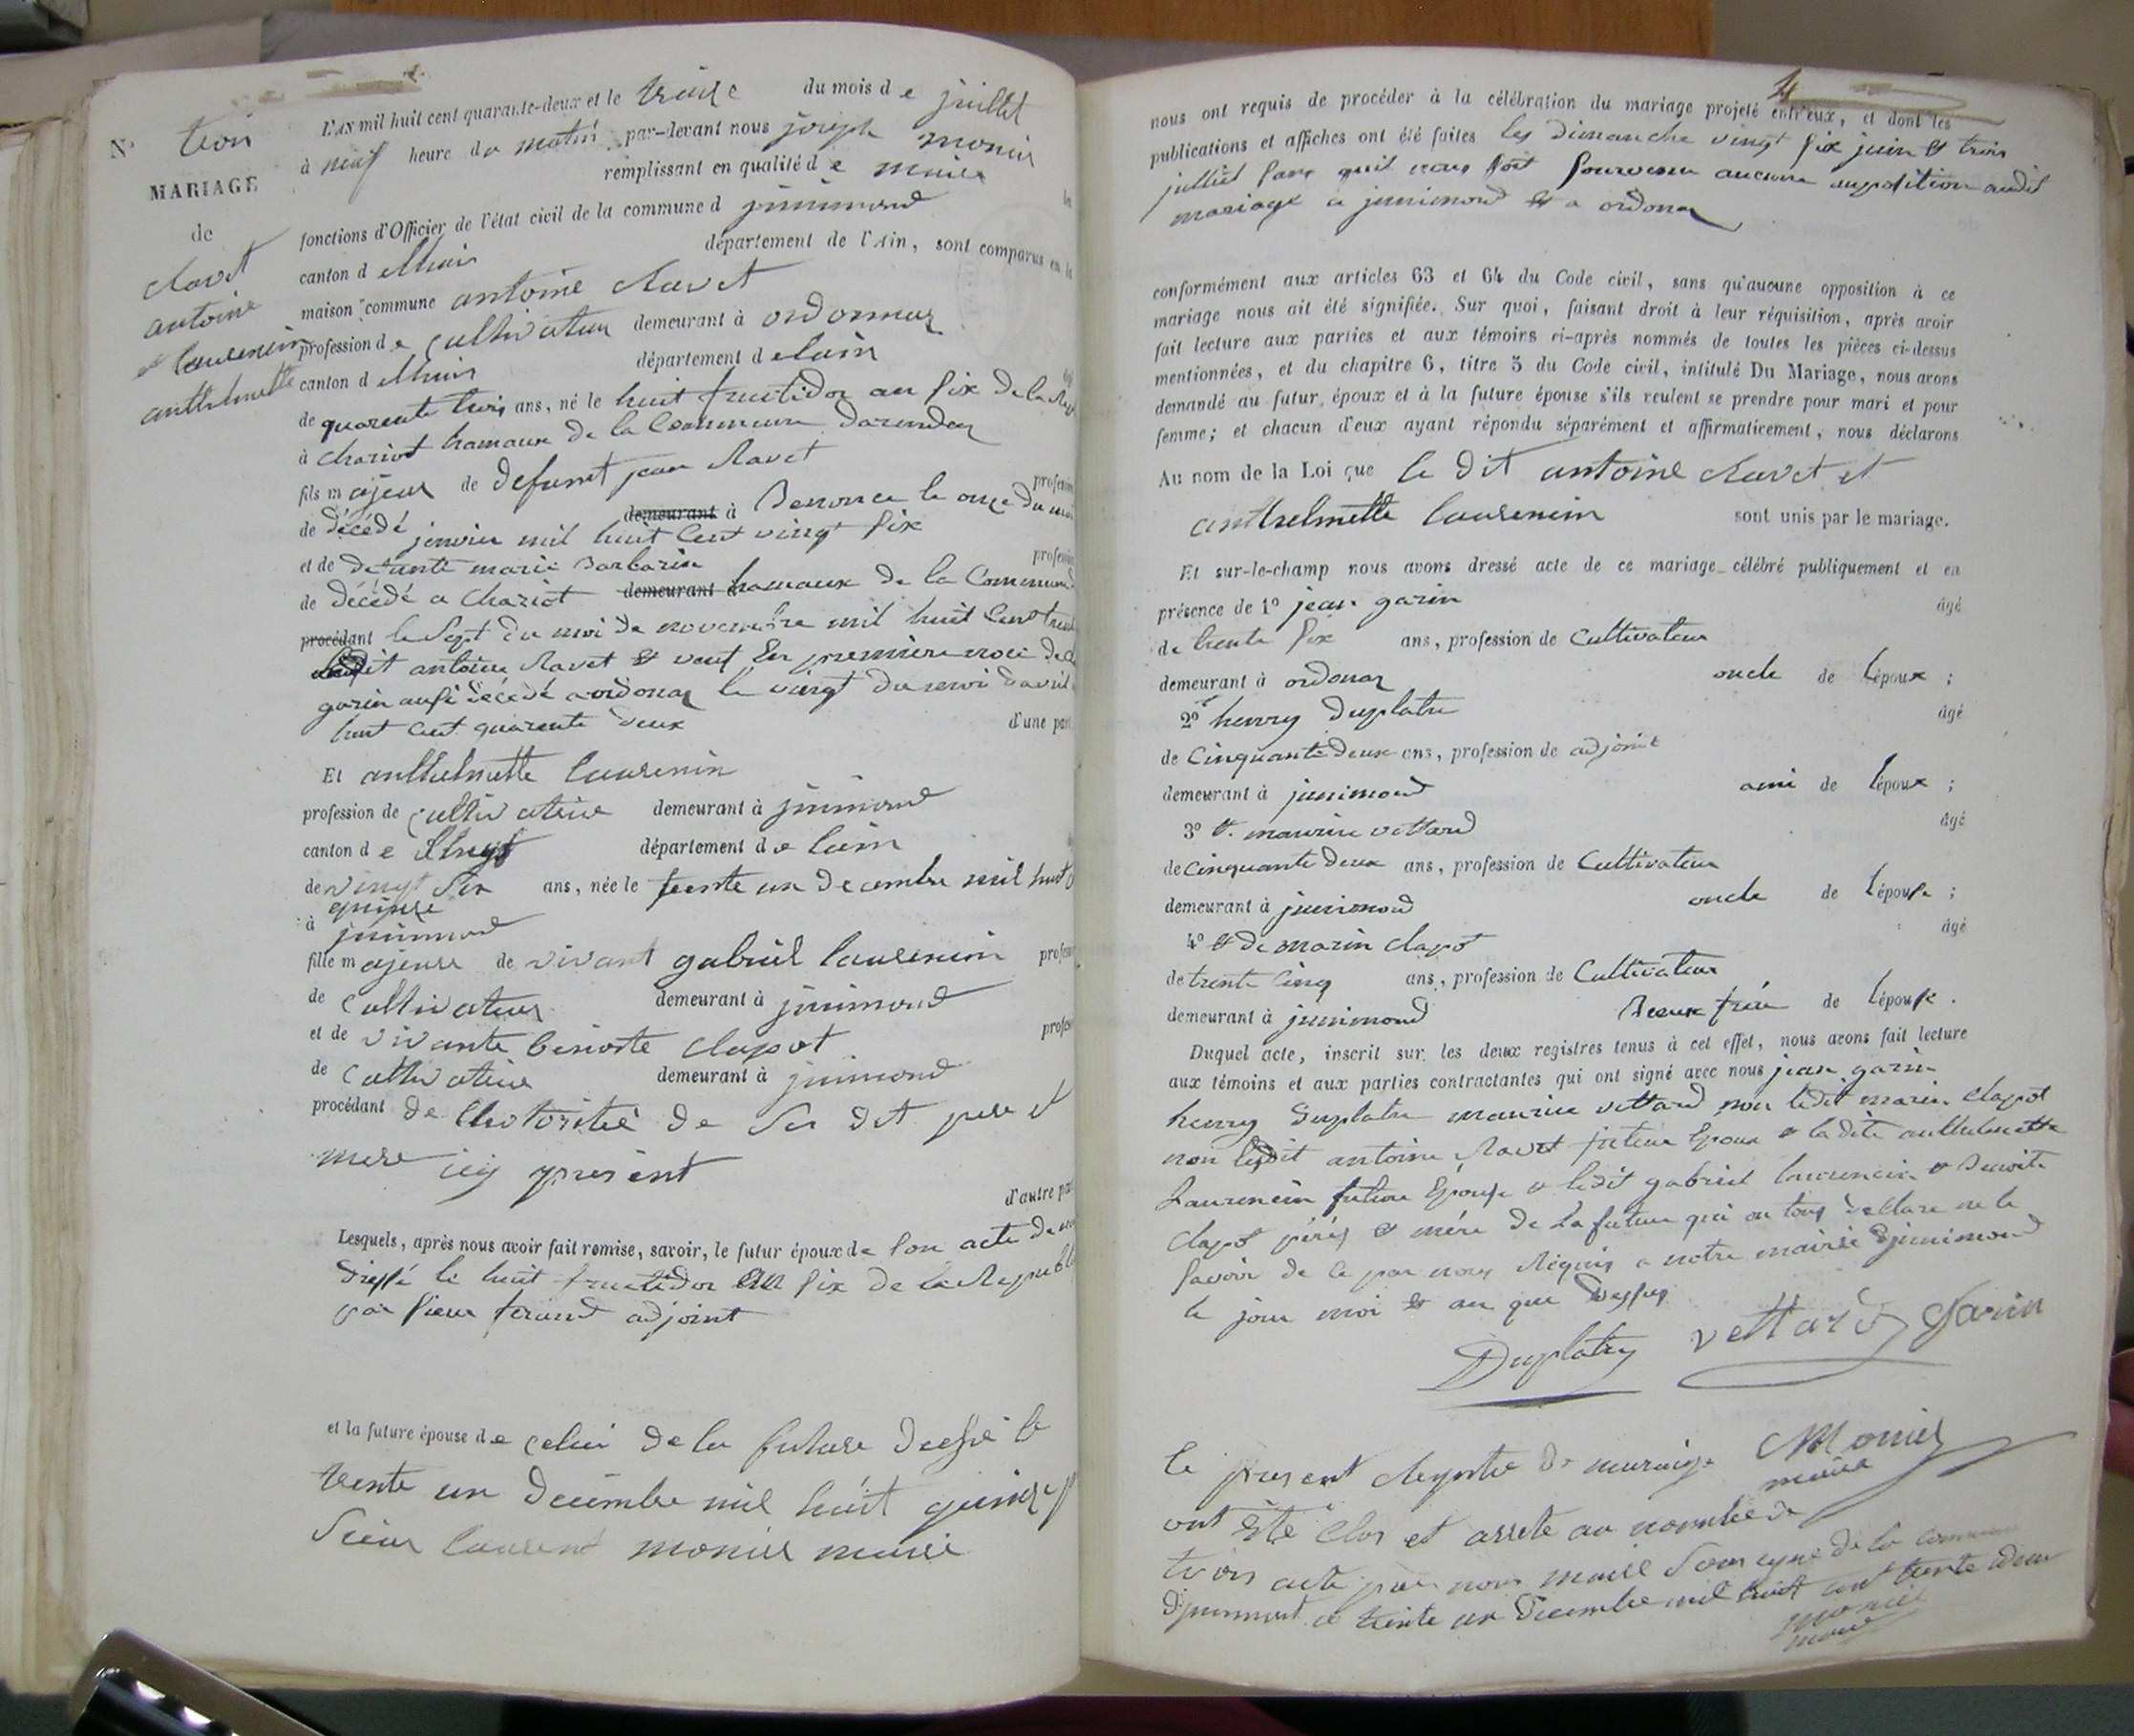 N° trois
MARIAGE
de
Ravet
antoine
et laurencin
anthelmette
L'AN mil huit cent quarante-deux et le treize du mois de juillet
à neuf heure du matin par-devant nous joseph monier
remplissant en qualité de maire
fonctions d'Officier de l'état civil de la commune d jnnimond
canton d lhuis département de l'Ain, sont comparus en la
maison commune antoine Ravet
profession de cultivateur demeurant à ordonnaz
canton d lhuis département de lain
de quarente trois ans, né le huit fructidor an six de la
à chariot hamaux de la Commune darandaz
fils majeur de defunt jean Ravet
de décédé demeurant à Benonce le onze du moi
janvier mil huit Cent vingt six
et de defunte marie Barbarin
de décédé a Chariot demeurant hamaux de la Commune
procédant le Sept du moi de novembre mil huit Cent
ledit antoine Ravet et veuf En premiere noce de
garin aussi décédé a ordonaz le vingt du moi davril
huit Cent quarente deux d'une part
Et anthelmette laurencin
profession de cultivatrice demeurant à jnnimond
canton de lhuys département de lain
de vingt six ans, née le trente un decembre mil huit
quinze
à jnnimond
fille majeure de vivant gabriel laurencin profession
de Cultivateur demeurant à jnnimond
et de vivante benoite clapot
de Cultivatrice demeurant à jnnimond
procédant de lhotoritée de Ses dit pere et
mere icy present
d'autre part
Lesquels, après nous avoir fait remise, savoir, le futur époux de Son acte de
dressé le huit fructidor an six de la Republ
par sieur ferand adjoint
et la future épouse de celui de la future dressé le
trente un decembre mil huit quinze p
Sieur laurent monier maire
nous ont requis de procéder à la célébration du mariage projeté entr'eux, et dont les
publications et affiches ont été faites les dimanche vingt six juin et trois
julliet sans quil nous soit Survenu aucune oppodition audit
mariage a jnnimond et a ordonaz
conformément aux articles 63 et 64 du Code civil, sans qu'aucune opposition à ce
mariage nous ait été signifiée. Sur quoi, faisant droit à leur réquisition, après avoir
fait lecture aux parties et aux témoins ci-après nommés de toutes les pièces ci-dessus
mentionnées, et du chapitre 6, titre 5 du Code civil, intitulé Du Mariage, nous avons
demandé au futur époux et à la future épouse s'ils veulent se prendre pour mari et pour
femme; et chacun d'eux ayant répondu séparément et affirmativement, nous déclarons
Au nom de la Loi que le dit antoine Ravet et
anthelmette laurencin sont unis par le mariage.
Et sur-le-champ nous avons dressé acte de ce mariage célébré publiquement et en
présence de 1° jean garin âgé
de trente six ans, profession de Cultivateur
demeurant à ordonaz oncle de lépoux ;
2° henry Duplatre âgé
de Cinquante Deux ans, profession de adjoint
demeurant à jnnimond ami de lépoux ;
3° et maurice vettard âgé
de Cinquante Deux ans, profession de Cultivateur
demeurant à jnnimond oncle de lépouse ;
4° et de marin Clapot âgé
de trente Cinq ans, profession de Cultivateur
demeurant à jnnimond Beaux frére de lépouse.
Duquel acte, inscrit sur les deux registres tenus à cet effet, nous avons fait lecture
aux témoins et aux parties contractantes qui ont signé avec nous jean garin
henry Duplatre maurice vettard non ledit marin Clapot
non ledit antoine Ravet futeur Epoux et ladite anthelmette
Laurencin future Epouse et ledit gabriel laurencin et Benoite
Clapot pérés et mére de La future qui on tous declare ne le
savoir de ce par nous Réquis a notre mairie djnnimond
le jour moi et an que Dessus
Duplatre vettard Garin
Monier
maire
le present Regestre de mariage
ont été clos et arrete au nombre de
trois acte par nous maire Sousigné de la commune
djnnimond le trente un decembre mil huit cent
monier
maire